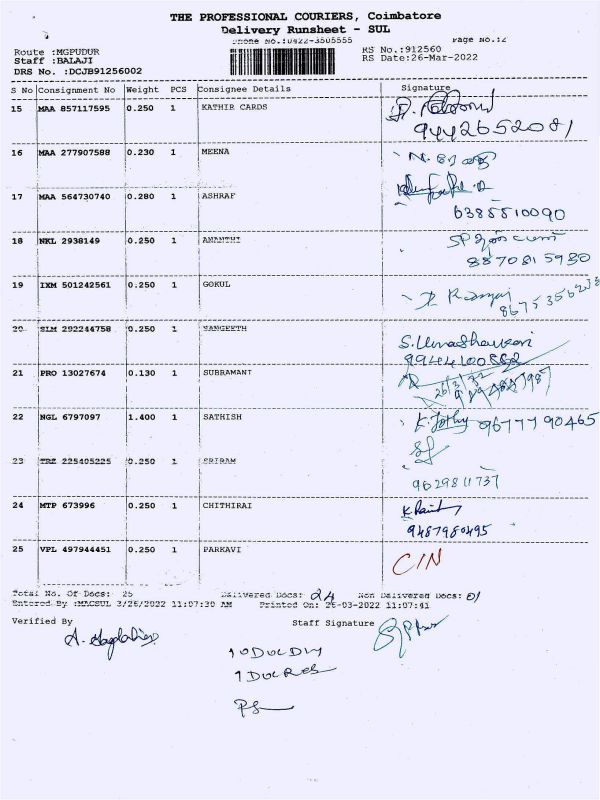 THE PROFESSIONAL COURIERS, Coimbatore
Delivery Runsheet - SUL
Phone No.:0422-3505555 Page No.:2
Route :MGPUDUR RS No.:912560
Staff :BALAJI RS Date:26-Mar-2022
DRS No. :DCJB91256002
S No Consignment No Weight PCS Consignee Details Signature
15 MAA 857117595 0.250 1 KATHIR CARDS
9442652081
16 MAA 277907588 0.230 1 MEENA
17 MAA 564730740 0.280 1 ASHRAF
6385510090
18 NKL 2938149 0.250 1 ANANTHI
8870815930
19 IXM 501242561 0.250 1 GOKUL
20 SLM 292244758 0.250 1 SANGEETH
S. Umashankari
9944100882
21 PRO 13027674 0.130 1 SUBRAMANI
22 NGL 6797097 1.400 1 SATHISH
K. Jothy 9677790465
23 TRZ 225405225 0.250 1 SRIRAM
9629811737
24 MTP 673996 0.250 1 CHITHIRAI
9487980495
25 VPL 497944451 0.250 1 PARKAVI
C/N
Total No. Of Docs: 25 Delivered Docs: 24 Non Delivered Docs: 01
Entered By :MACSUL 3/26/2022 11:07:30 AM Printed On: 26-03-2022 11:07:41
Verified By Staff Signature